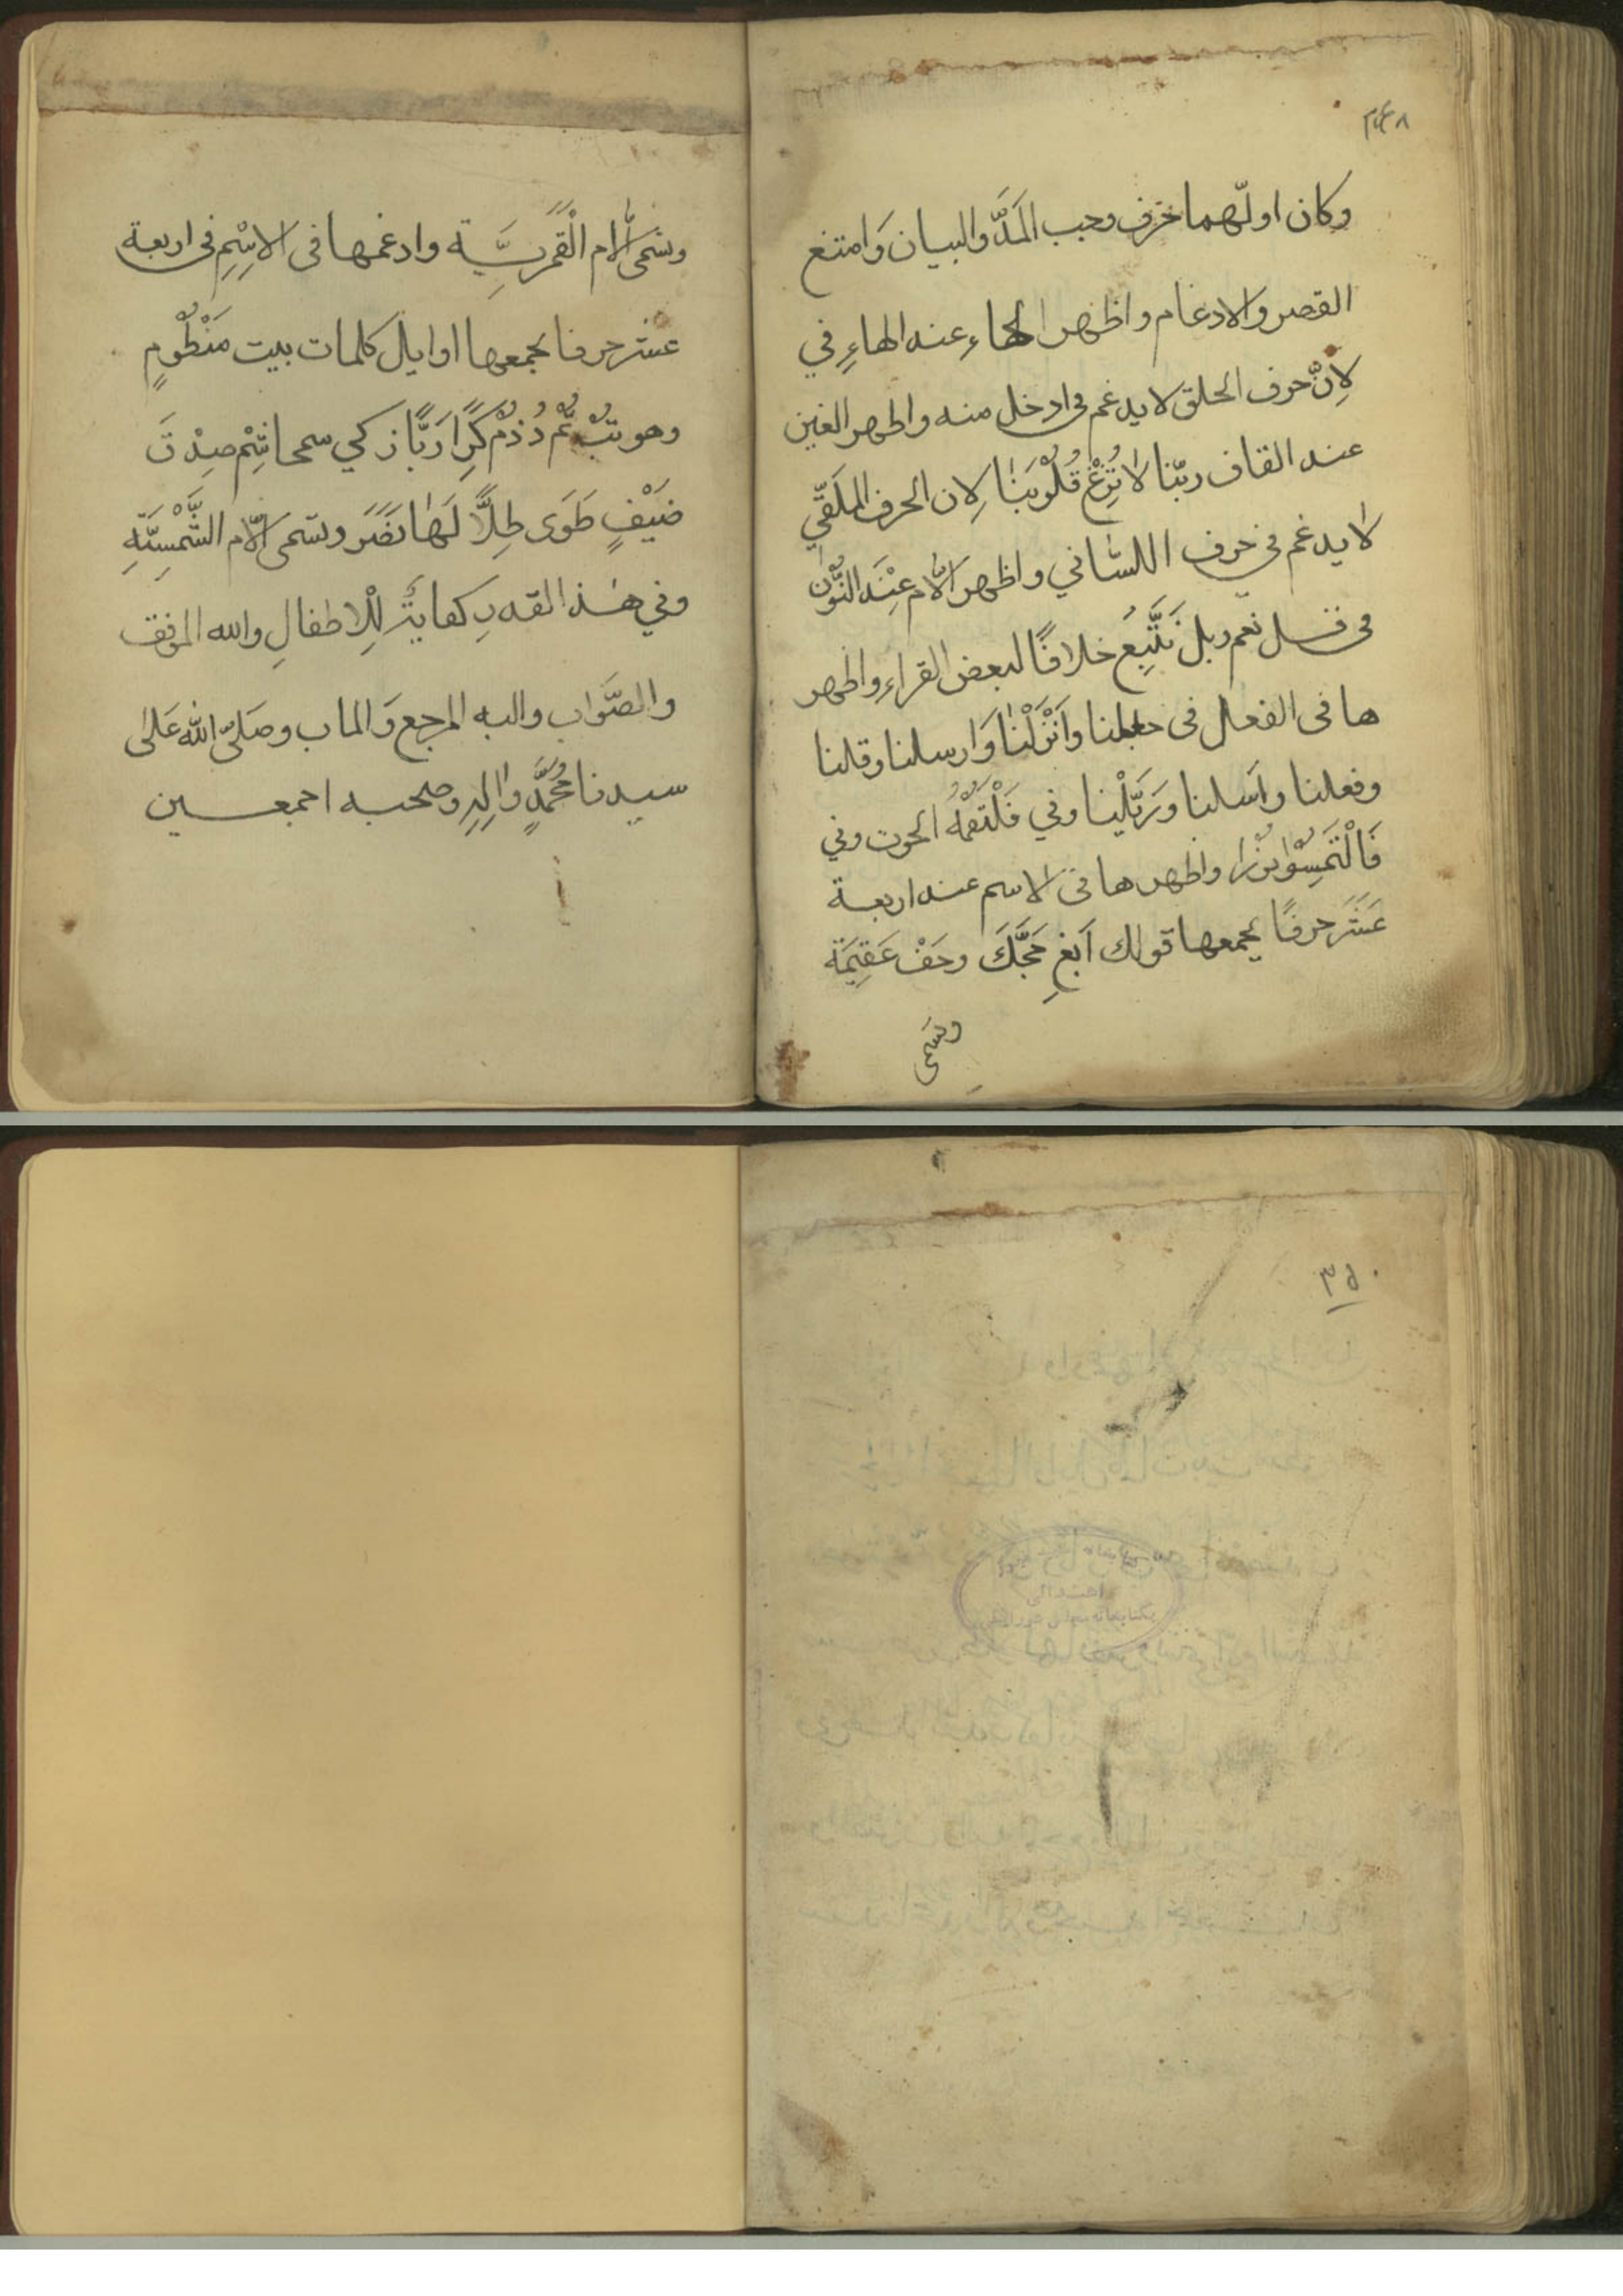 ٣٤٨
وكان اولهما حرف وجب المَدّ والبيان وَامتنع
القصر والادغام واظهر الحاءِ عند الهاءِ في
لِانّ حرف الحلق لا يدغم فى ادخل منه واظهر الغين
عند القاف ربّنا لاٰ تُزِغْ قُلُوْبَنٰا لِان الحرف الحلقي
لا يدغم في حرف اللسّاني واظهر اللّام عِنْدَ النُّوْن
فى قل نعم وبل نَتَّبِعُ خلافًا لبعض القراء واظهر
ها فى الفعل فى جعلنا وَاَنْزَلْنٰا وَارسلنا وقلنا
وفعلنا واَسلنا وَرَتَّلْنٰا وفي فَلْتَقَمَهُ الحوت وفي
فَالْتَمِسُوْا نُوْرًا واظهرها فى الاسم عند اربعة
عَشَرَ حرفًا يجمعها قولك اَبغِ حَجَّكَ وخَفْ عَقِيْمَة
وتسَمى
وتسَمىّ اللّام الْقَمَرِيَّة وادغمها فى الاِسْمِ فى اربعة
عشر حرفا يجمعها اوايل كلمات بيت مَنْظُوْمٍ
وهو تُبْ ثُمَّ دُمْ ذ رَبًّا زكي سمحا شِمْ صِدْقَ
ضَيْفٍ طَوَى ظِلًّا لَهٰا نَضَرَ وتسمى اللّام الشَّمْسِيَّةِ
وفي هٰذا القدرِ كفايةٌ لِلْاِطفالِ والله الموفق
والصَّوَابِ واليه المرجع وَالماب وصَلىّ اللّٰه عَلى
سيدنا مُحَمَّدٍ وَاٰلِهِ وصحبه اجمعين
٣٥٠